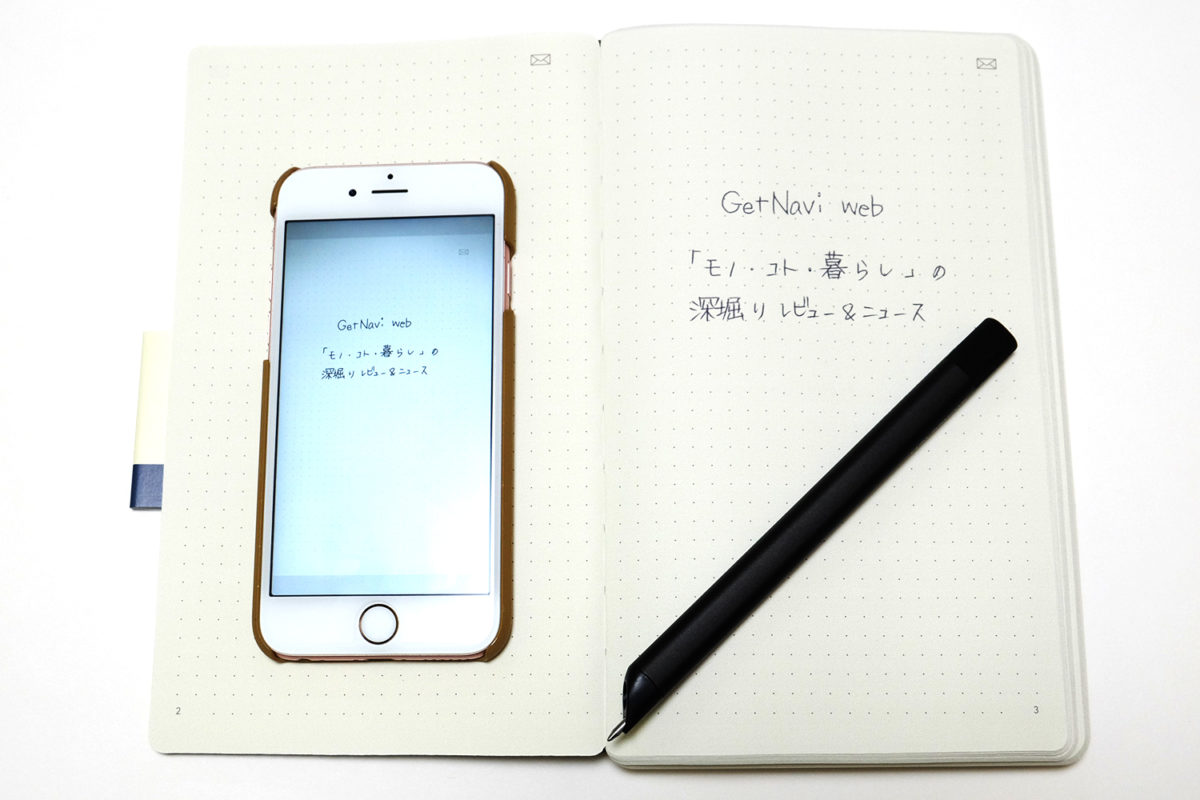 GetNavi web
「モノ・コト・暮らし」の
深堀りレビュー&ニュース
2
GetNavi web
「モノ・コト・暮らし」の
深堀りレビュー&ニュース
3